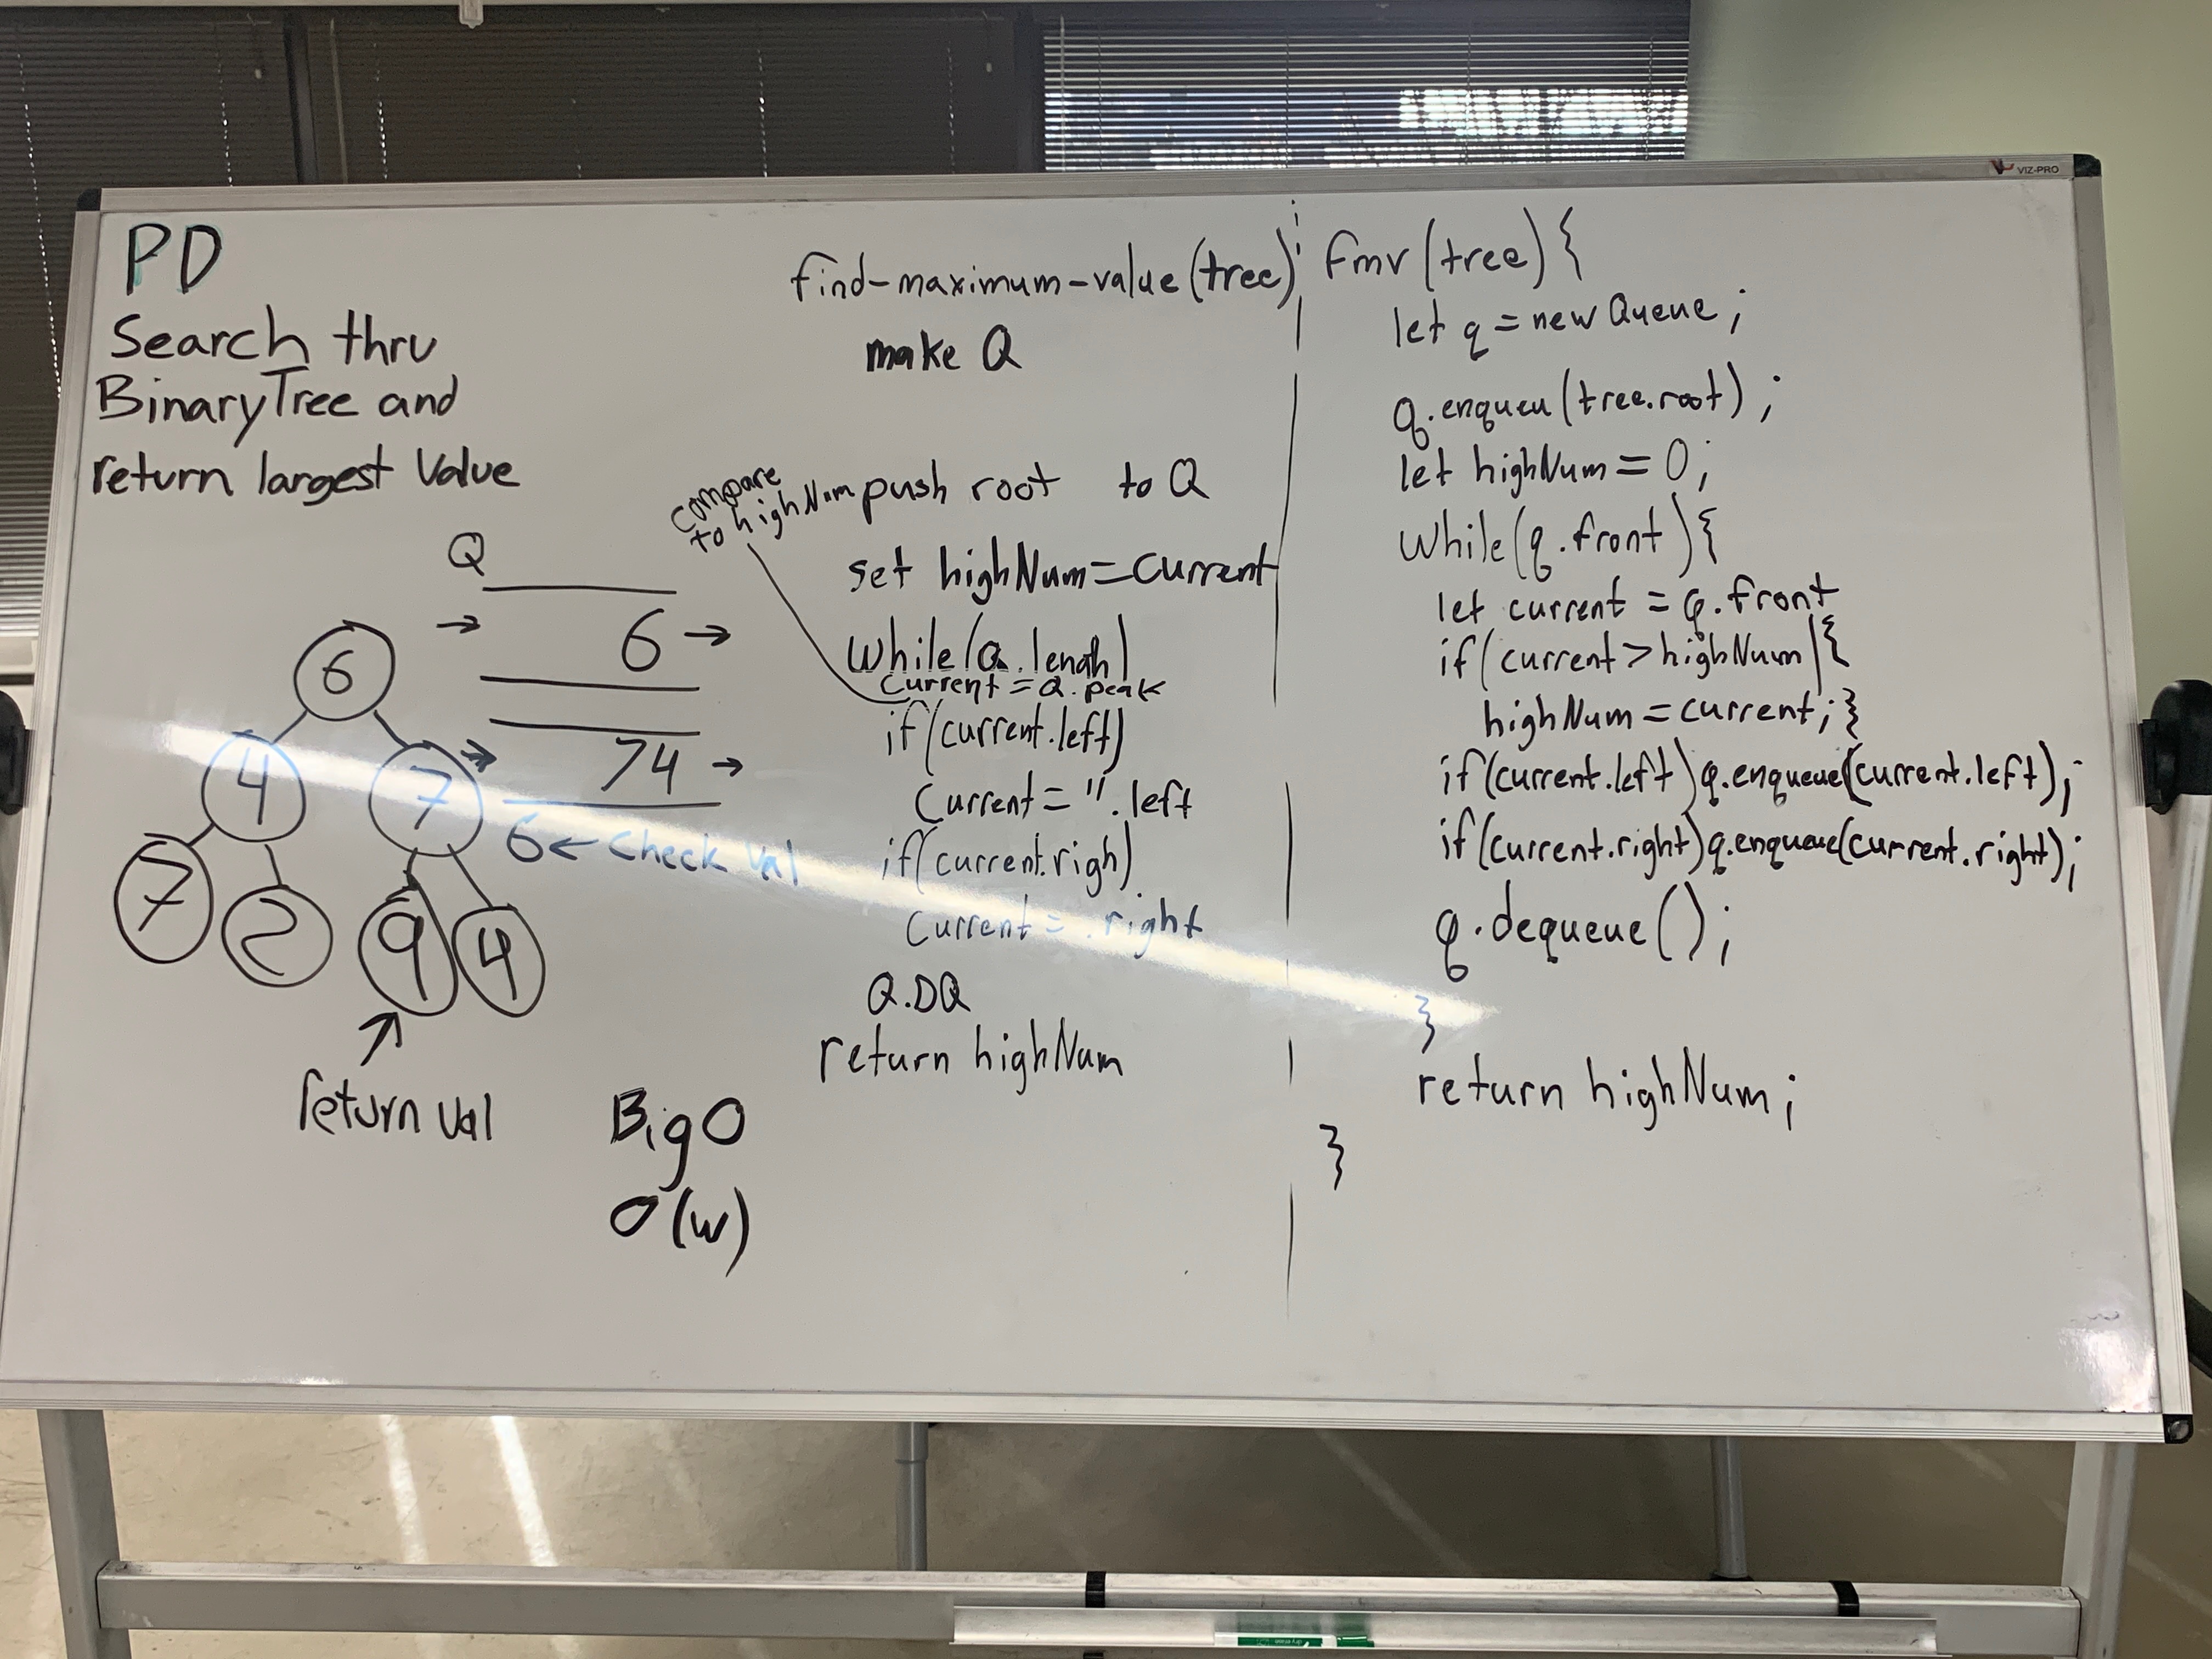 VIZ-PRO
PD
Search thru
BinaryTree and
return largest Value
Q
6
74
6 ← Check Val
6
4 7
7 2 9 4
return val
Big O
O(w)
find-maximum-value(tree)
make Q
push root to Q
compare
to highNum
set highNum=Current
While(Q.lengh)
Current = Q.peak
if(current.left)
Current = ".left
if(current.righ)
Current = .right
Q.DQ
return highNum
fmv(tree){
let q = new Queue;
q.enqueu(tree.root);
let highNum = 0;
While(q.front){
let current = q.front
if(current>highNum){
highNum = current;}
if(current.left)q.enqueue(current.left);
if(current.right)q.enqueue(current.right);
q.dequeue();
}
return highNum;
}